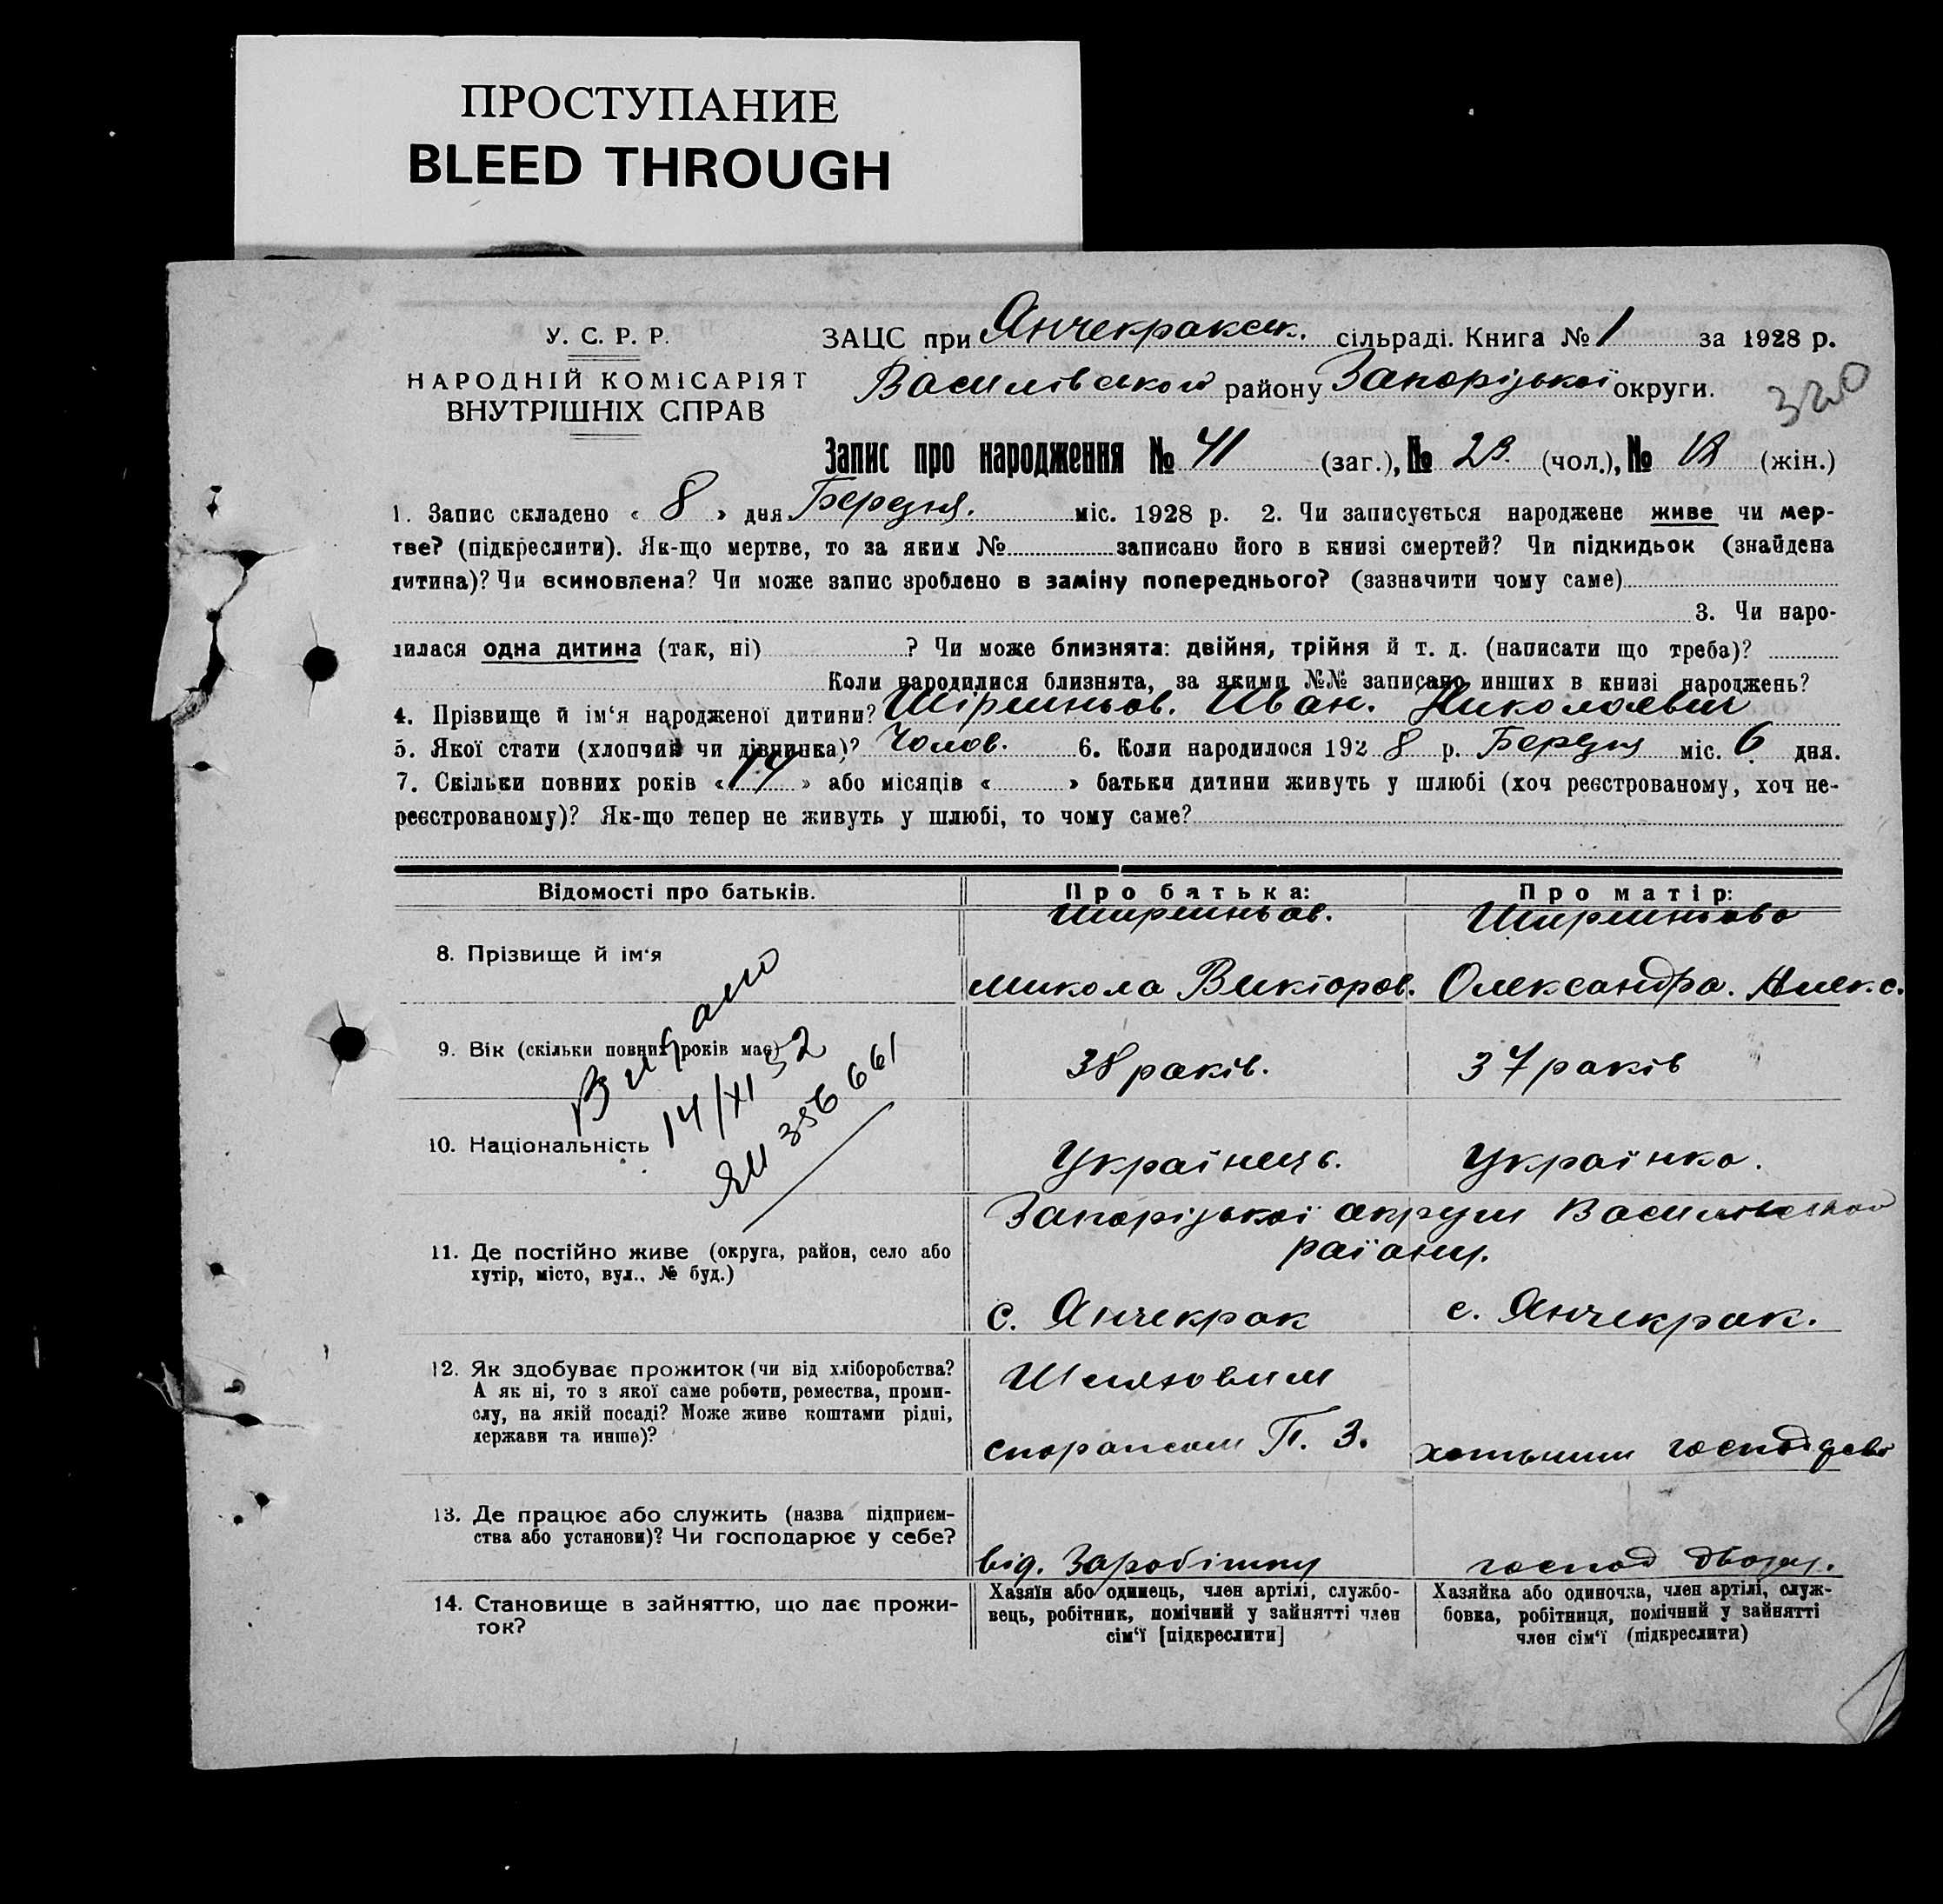 ПРОСТУПАНИЕ
BLEED THROUGH
У. С. Р. Р.
НАРОДНІЙ КОМІСАРІЯТ
ВНУТРІШНІХ СПРАВ
ЗАЦС при Янчекракск. сільраді. Книга № 1 за 1928 р.
Василівського району Запорізької округи.
320
Запис про народження № 41 (заг.), № 23. (чол.), № 18 (жін.)
1. Запис складено « 8 » дня Березня. міс. 1928 р. 2. Чи записується народжене живе чи мер-
тве? (підкреслити). Як-що мертве, то за яким № записано його в книзі смертей? Чи підкидьок (знайдена
дитина)? Чи всиновлена? Чи може запис зроблено в заміну попереднього? (зазначити чому саме)
3. Чи наро-
дилася одна дитина (так, ні) ? Чи може близнята: двійня, трійня й т. д. (написати що треба)?
Коли народилися близнята, за якими №№ записано инших в книзі народжень?
4. Прізвище й ім‘я народженої дитини? Шіршньов. Иван. Николаевич
5. Якої стати (хлопчик чи дівчинка)? Чолов. 6. Коли народилося 1928 р. Березня міс. 6 дня.
7. Скільки повних років « 14 » або місяців « » батьки дитини живуть у шлюбі (хоч реєстрованому, хоч не-
реєстрованому)? Як-що тепер не живуть у шлюбі, то чому саме?
Відомості про батьків. Про батька: Про матір:
Ширшньов. Ширшньова
8. Прізвище й ім‘я
Микола Викторов. Олександра. Алекс.
Видано
9. Вік (скільки повних років має) 38 років. 37 років
14/XI 52
ЯШ 356661
10. Національність Українець. Українка.
Запорізької округи Василівського
району.
11. Де постійно живе (округа, район, село або
хутір, місто, вул., № буд.)
с. Янчекрак с. Янчекрак.
12. Як здобуває прожиток (чи від хліборобства?
А як ні, то з якої саме роботи, ремества, проми-
слу, на якій посаді? Може живе коштами рідні,
держави та инше)?
Шляховим
П. З.
13. Де працює або служить (назва підприєм-
ства або установи)? Чи господарює у себе?
від. Заробітку господ
14. Становище в зайняттю, що дає прожи-
ток?
Хазяїн або одинець, член артілі, службо-
вець, робітник, помічний у зайнятті член
сім‘ї [підкреслити]
Хазяйка або одиночка, член артілі, служ-
бовка, робітниця, помічний у зайнятті
член сім‘ї (підкреслити)